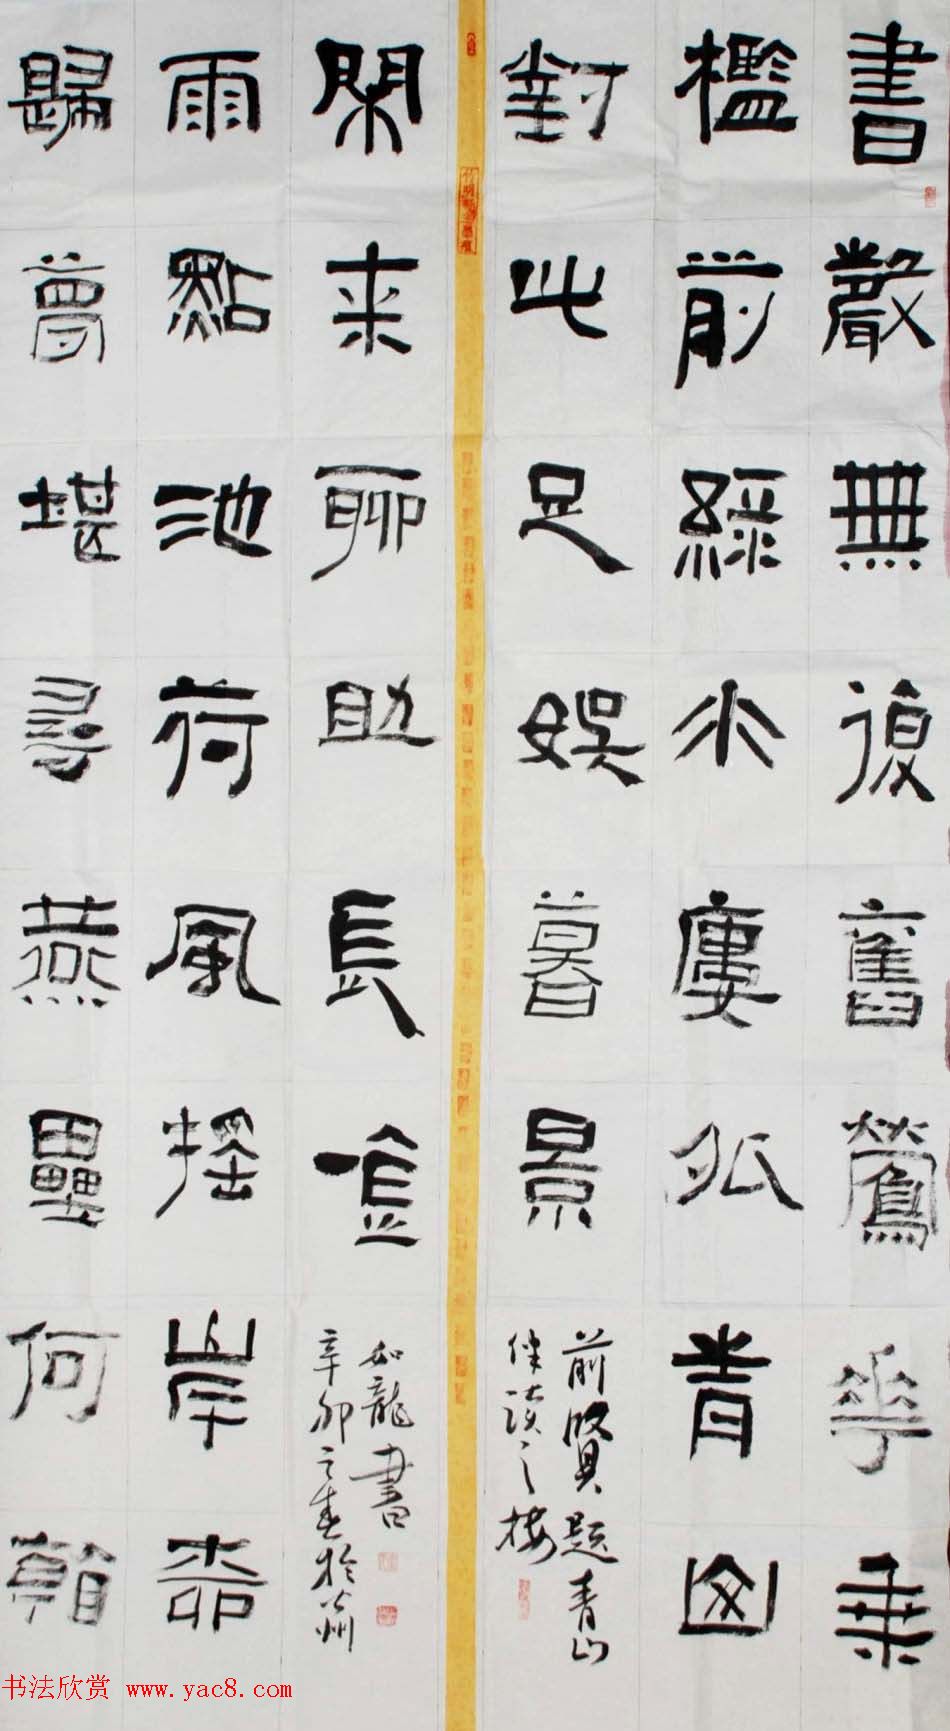 書嚴無復舊鶯華
檻前綠水廔外青山
對此足娛暮景
前賢題青山
伴讀之樓
歸夢堪尋燕壘何
雨點池荷風搖岸柳
閑來聊助長吟
如龍書
辛卯之春於蘇州
书法欣赏 www.yac8.com